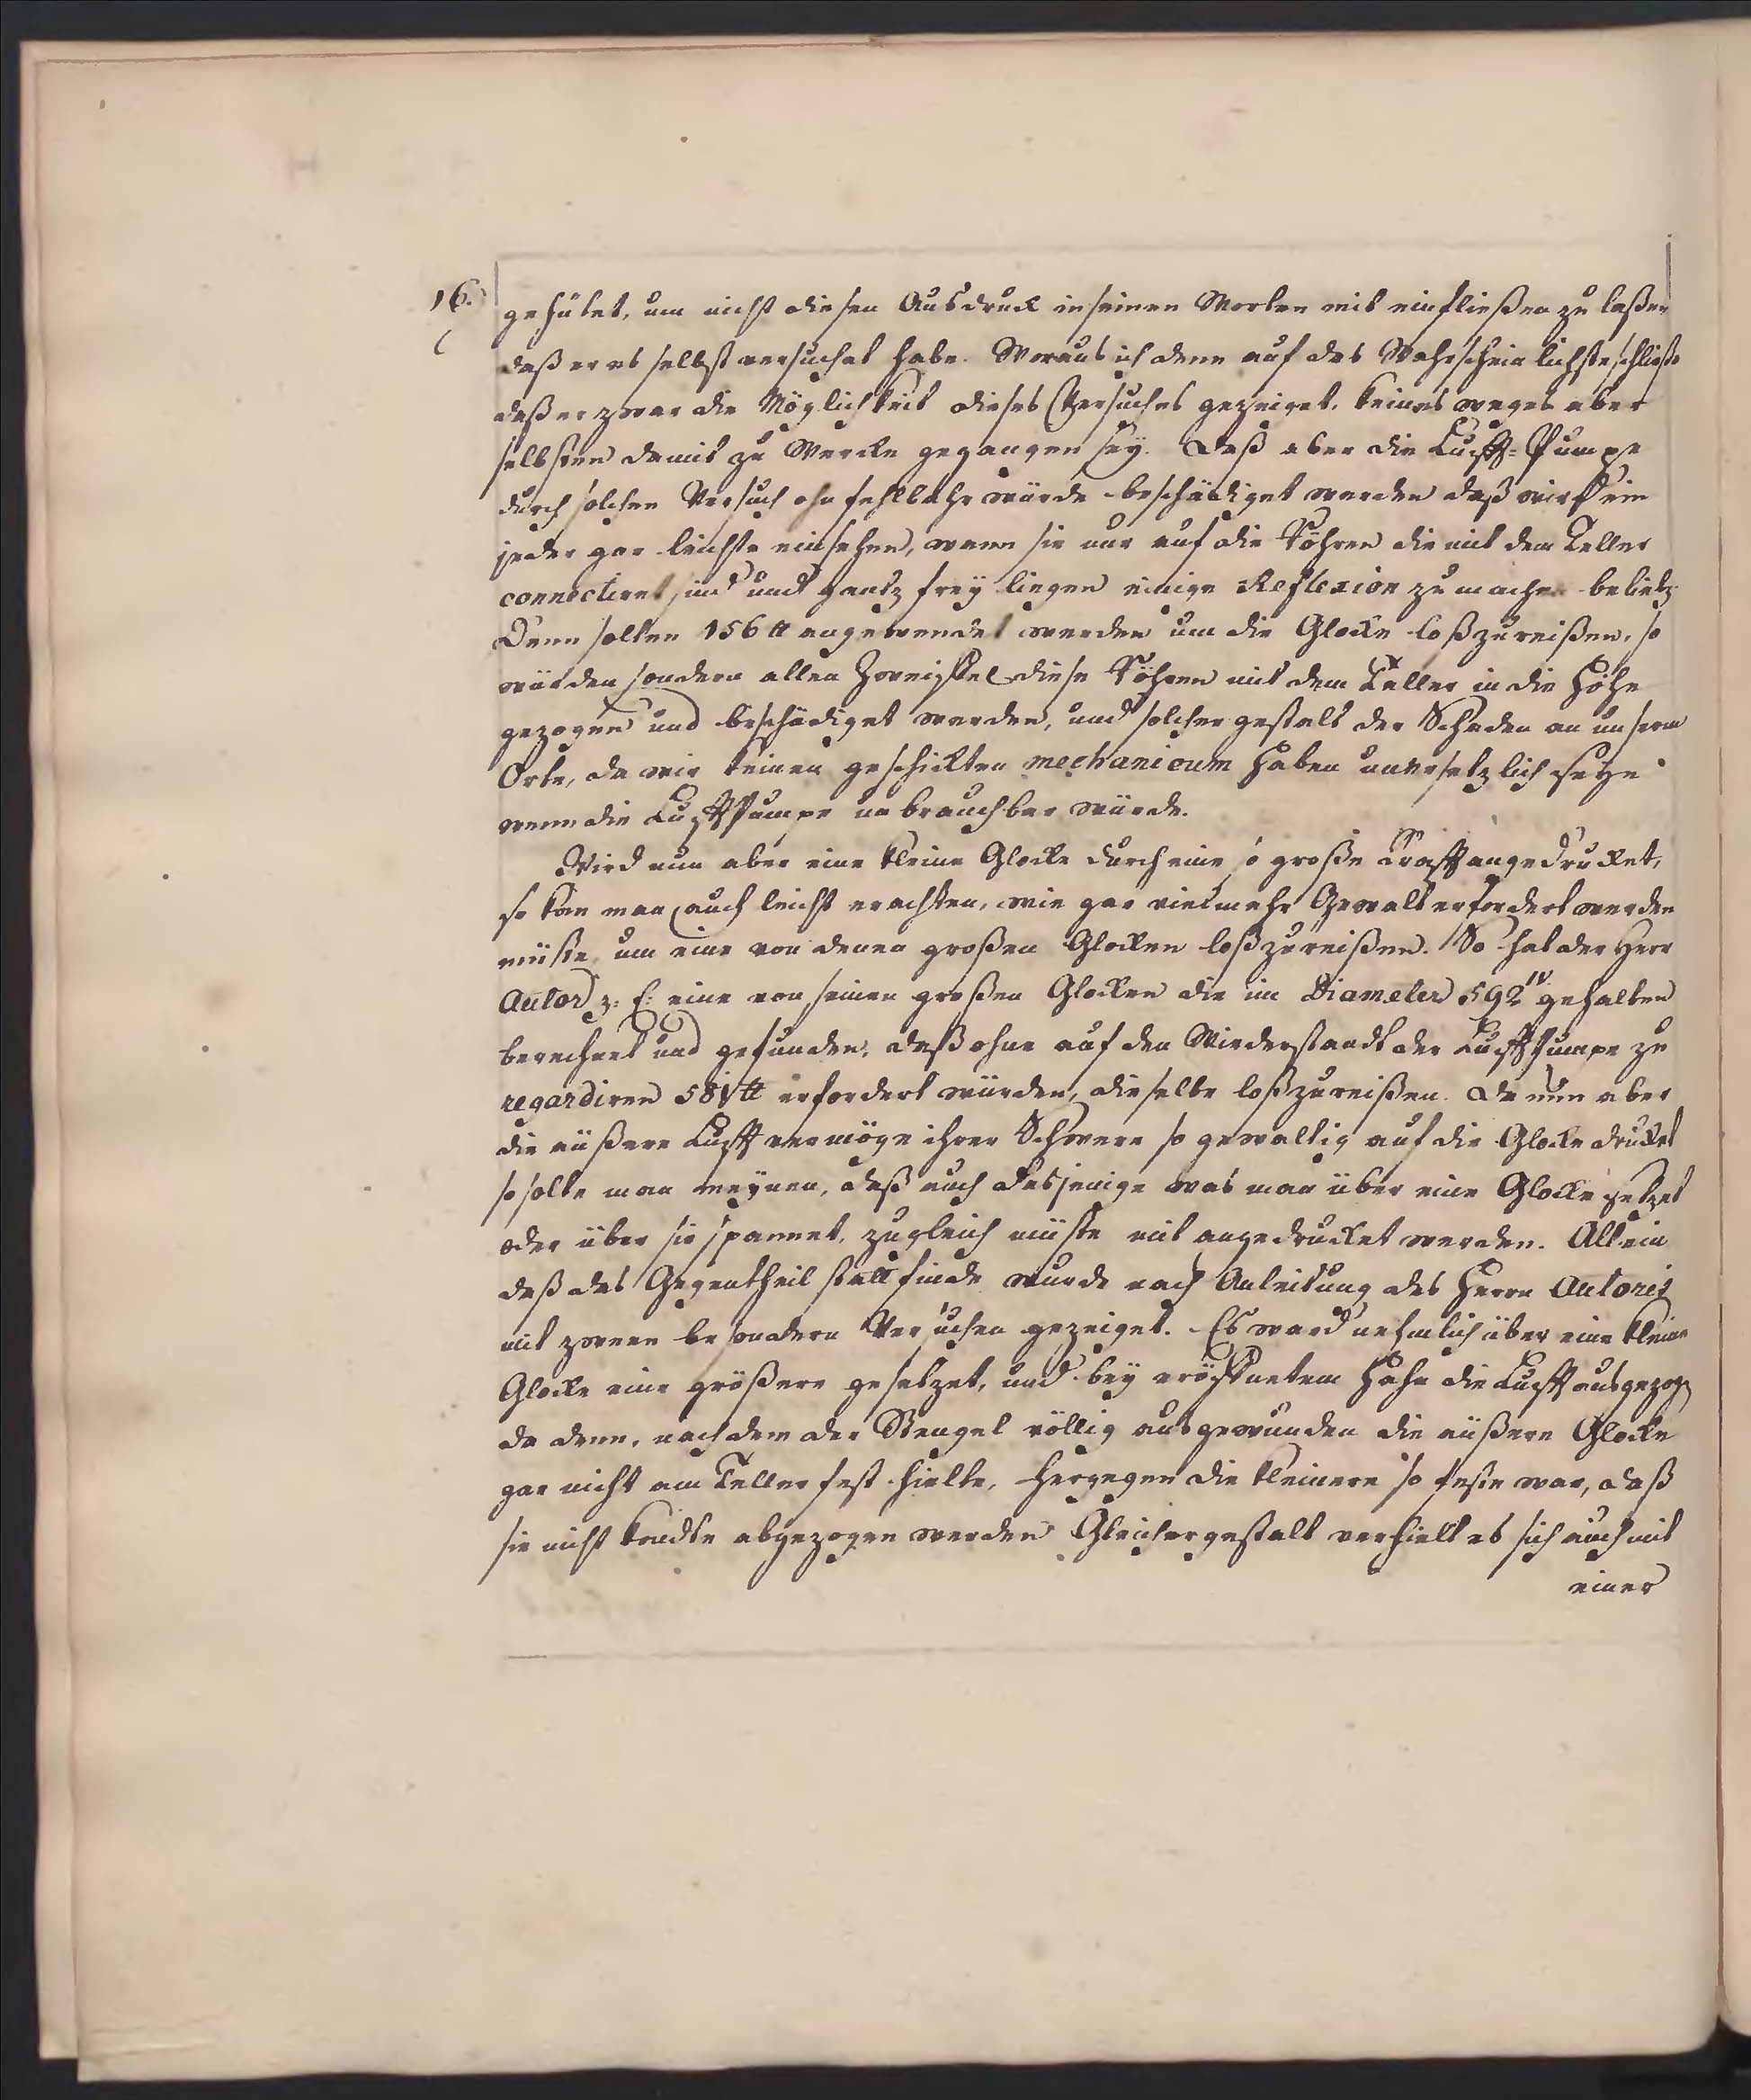 16.
gehütet, um nicht diesen Ausdruck in seinen Worten mit einfließen zu laßen
daß er es selbst versuchet habe. Woraus ich denn auf das Wahrscheinlichste schließe
daß er zwar die Möglichkeit dieses Versuches gezeiget, keines weges aber
selbsten damit zu Wercke gegangen sey. Daß aber die Lufft-Pumpe
durch solchen Versuch ohnfehlbahr würde beschädiget werden daß wird ein
jeder gar leichte einsehen, wenn sie nur auf die Röhren die mit dem Teller
connectiret sind und gantz frey liegen einige Reflexion zu machen beliebz
Denn solten 156 ℔ angewendet werden um die Glocke loßzureißen, so
würden sondern allen Zweiffel diese Röhren mit dem Teller in die Höhe
gezogen und beschädiget werden, und solchergestalt der Schaden an unserm
Orte, da wir keinen geschickten mechanicum haben unersetzlich seyn
wenn die Lufftpumpe unbrauchbar würde.
Wird nun aber eine kleine Glocke durch eine so große Krafft angedrucket,
so kan man auch leicht erachten, wie gar vielmehr Gewalt erfordert werden
müste, um eine von denen großen Glocken loßzureißen. So hat der Herr
Autor z: E: eine von seinen großen Glocken die im Diameter 592''' gehalten
berechnet und gefunden, daß ohne auf den Wiederstandt der Lufftpumpe zu
regardiren 581 ℔ erfordert würden, dieselbe loßzureißen. Da nun aber
die äußere Lufft vermöge ihrer Schwere so gewaltig auf die Glocke drucket
so solte man meynen, daß auch dasjenige was man über eine Glocke setzet
oder über sie spannet, zugleich müste mit angedrucket werden. Allein
daß das Gegentheil statt finde wurde nach Anleitung des Herrn Autoris
mit zween besondern Versuchen gezeiget. Es ward nehmlich über eine kleine
Glocke eine größere gesetzet, und bey eröffnetem Hahn die Lufft ausgezogn
da denn, nachdem der Stengel völlig ausgewunden die äußere Glocke
gar nicht am Teller fest hielte, hergegen die kleinere so feste war, daß
sie nicht kondte abgezogen werden Gleichergestalt verhielt es sich auch mit
einer